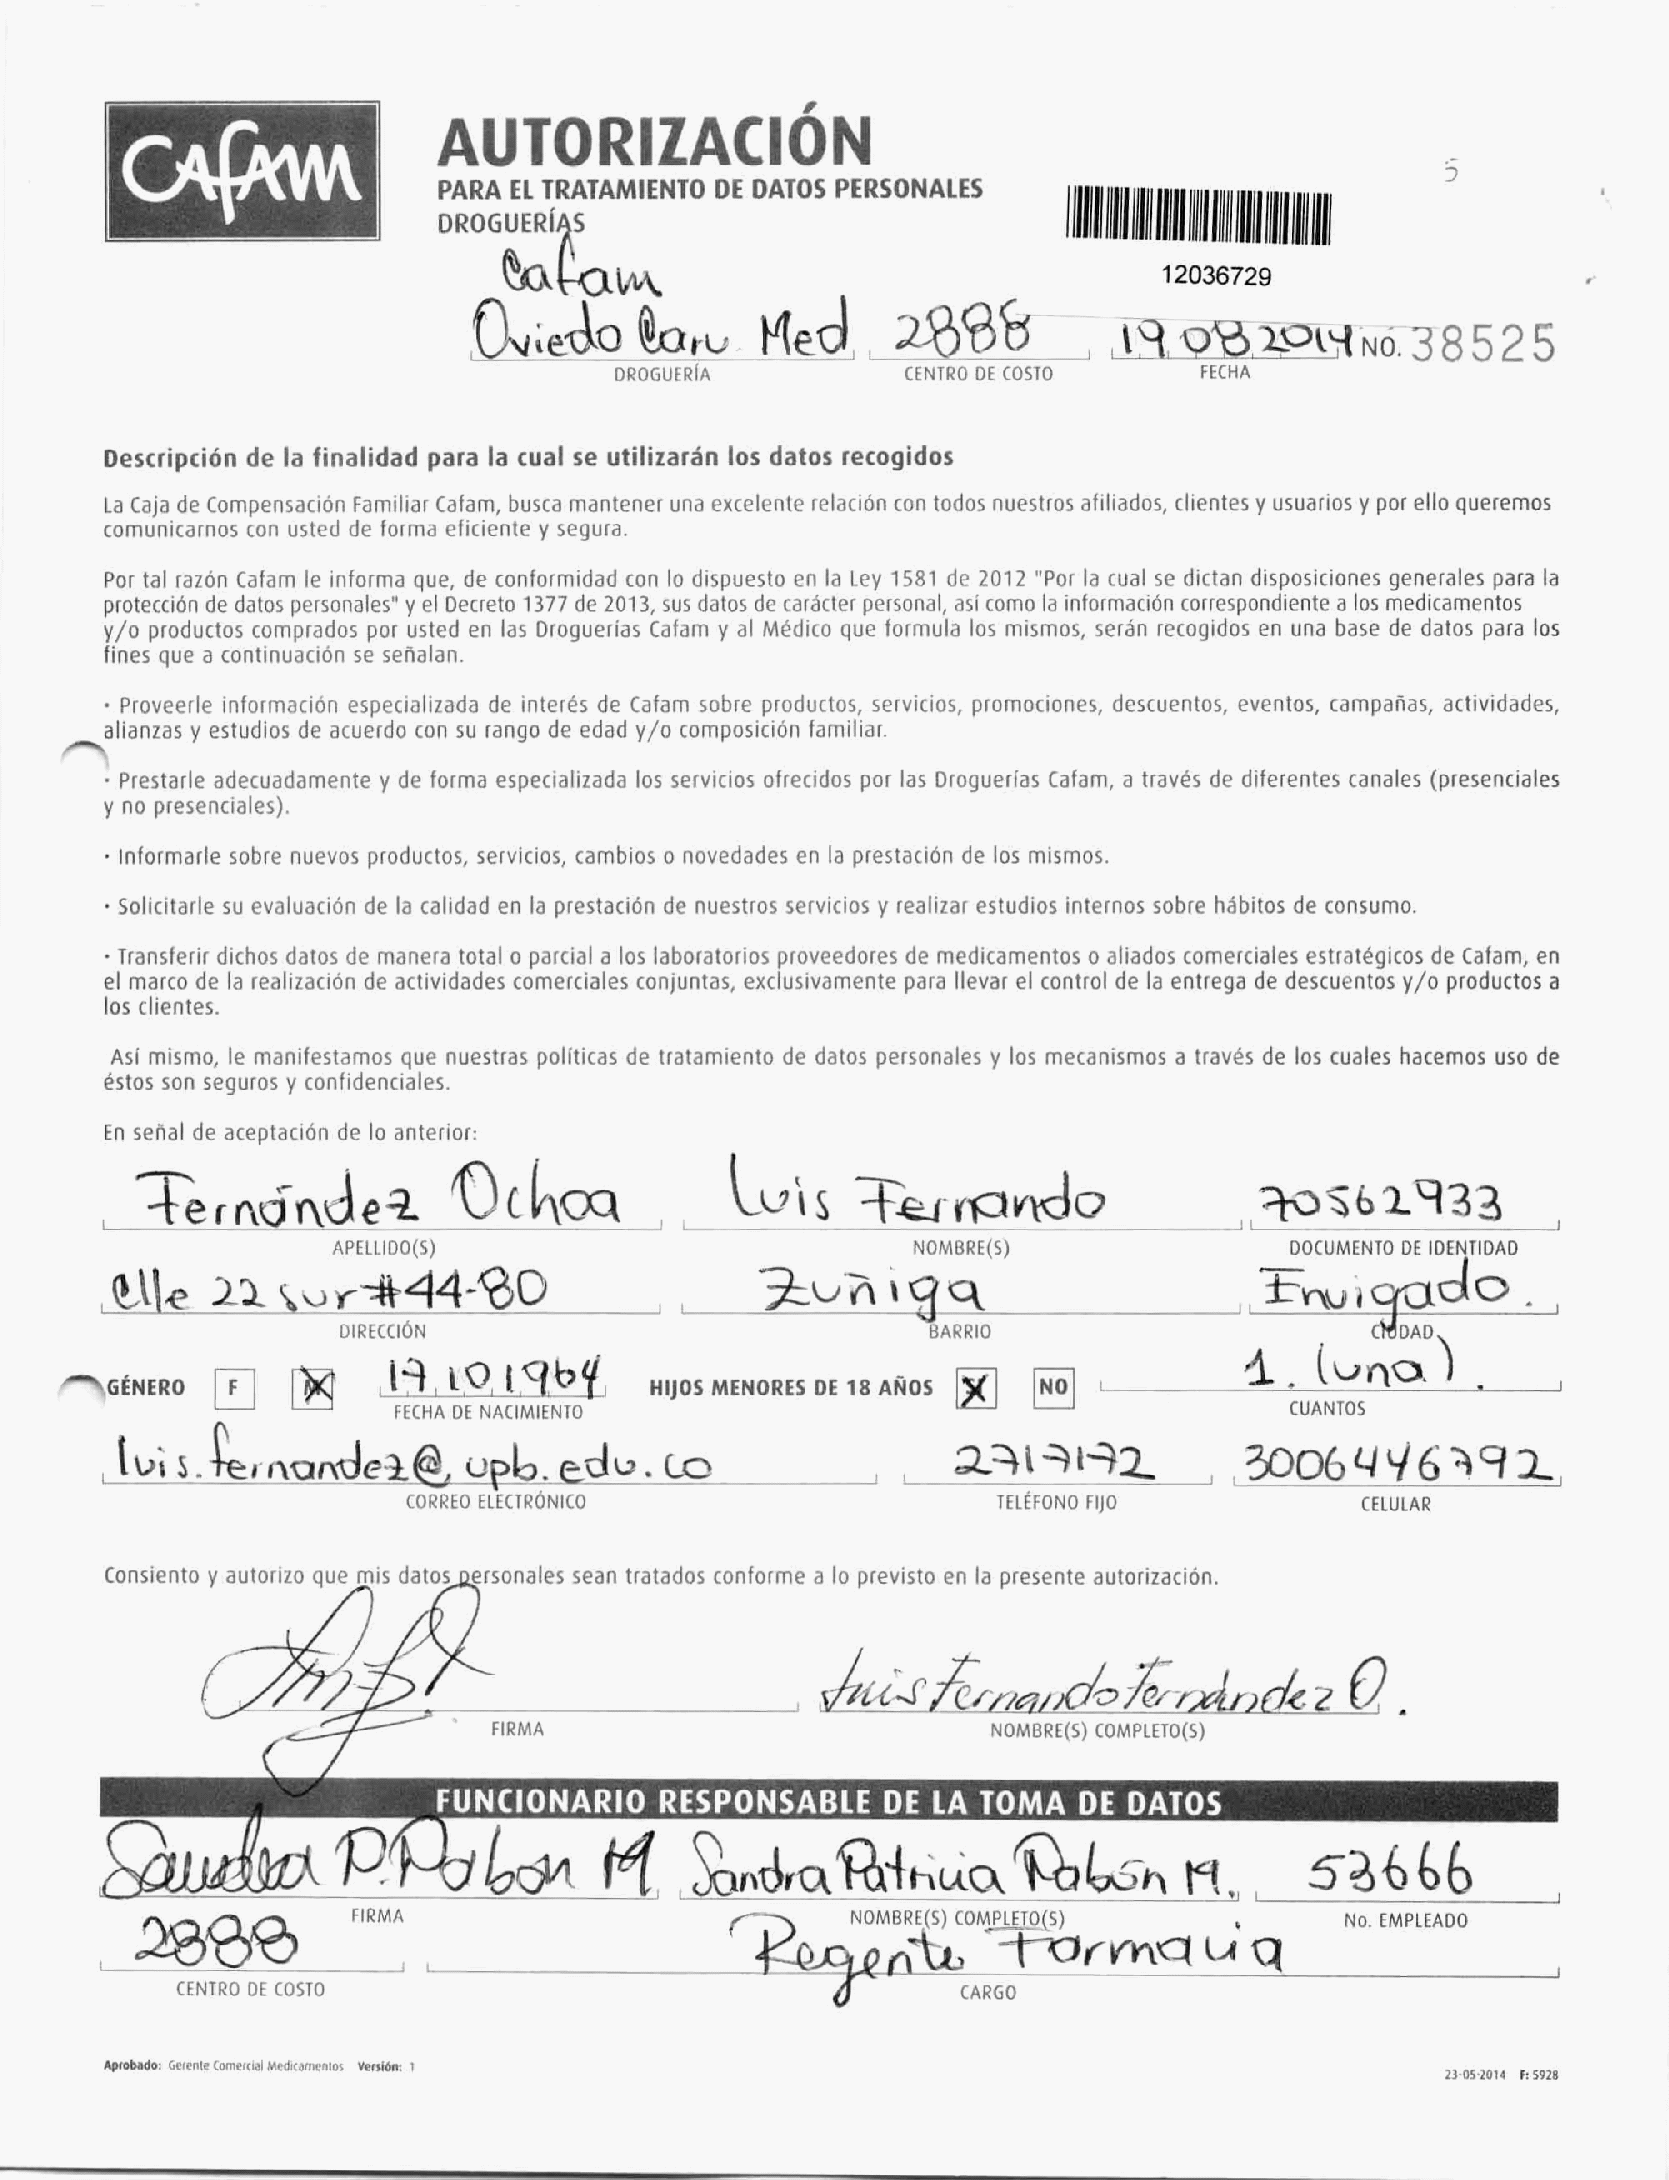 CAFAM
AUTORIZACIÓN
PARA EL TRATAMIENTO DE DATOS PERSONALES
DROGUERÍAS
5
12036729
Cafam
Oviedo Med 2888 19 08 2014 NO. 38525
DROGUERÍA CENTRO DE COSTO FECHA
Descripción de la finalidad para la cual se utilizarán los datos recogidos
La Caja de Compensación Familiar Cafam, busca mantener una excelente relación con todos nuestros afiliados, clientes y usuarios y por ello queremos
comunicarnos con usted de forma eficiente y segura.
Por tal razón Cafam le informa que, de conformidad con lo dispuesto en la Ley 1581 de 2012 "Por la cual se dictan disposiciones generales para la
protección de datos personales" y el Decreto 1377 de 2013, sus datos de carácter personal, así como la información correspondiente a los medicamentos
y/o productos comprados por usted en las Droguerías Cafam y al Médico que formula los mismos, serán recogidos en una base de datos para los
fines que a continuación se señalan.
· Proveerle información especializada de interés de Cafam sobre productos, servicios, promociones, descuentos, eventos, campañas, actividades,
alianzas y estudios de acuerdo con su rango de edad y/o composición familiar.
· Prestarle adecuadamente y de forma especializada los servicios ofrecidos por las Droguerías Cafam, a través de diferentes canales (presenciales
y no presenciales).
· Informarle sobre nuevos productos, servicios, cambios o novedades en la prestación de los mismos.
· Solicitarle su evaluación de la calidad en la prestación de nuestros servicios y realizar estudios internos sobre hábitos de consumo.
· Transferir dichos datos de manera total o parcial a los laboratorios proveedores de medicamentos o aliados comerciales estratégicos de Cafam, en
el marco de la realización de actividades comerciales conjuntas, exclusivamente para llevar el control de la entrega de descuentos y/o productos a
los clientes.
Así mismo, le manifestamos que nuestras políticas de tratamiento de datos personales y los mecanismos a través de los cuales hacemos uso de
éstos son seguros y confidenciales.
En señal de aceptación de lo anterior:
Fernández Ochoa Luis Fernando 70562933
APELLIDO(S) NOMBRE(S) DOCUMENTO DE IDENTIDAD
Clle 22 sur #44-80 Zuñiga Envigado.
DIRECCIÓN BARRIO CIUDAD
GÉNERO F X 17 10 1964 HIJOS MENORES DE 18 AÑOS X NO 1. (una).
FECHA DE NACIMIENTO CUANTOS
luis.fernandez@upb.edu.co 2717172 3006446792
CORREO ELECTRÓNICO TELÉFONO FIJO CELULAR
Consiento y autorizo que mis datos personales sean tratados conforme a lo previsto en la presente autorización.
Luis Fernando Fernández O.
FIRMA NOMBRE(S) COMPLETO(S)
FUNCIONARIO RESPONSABLE DE LA TOMA DE DATOS
Sandra P. Pabon M Sandra Patricia Pabón M. 53666
FIRMA NOMBRE(S) COMPLETO(S) No. EMPLEADO
2888 Regente Farmacia
CENTRO DE COSTO CARGO
Aprobado: Gerente Comercial Medicamentos Versión: 1
23-05-2014 F: 5928